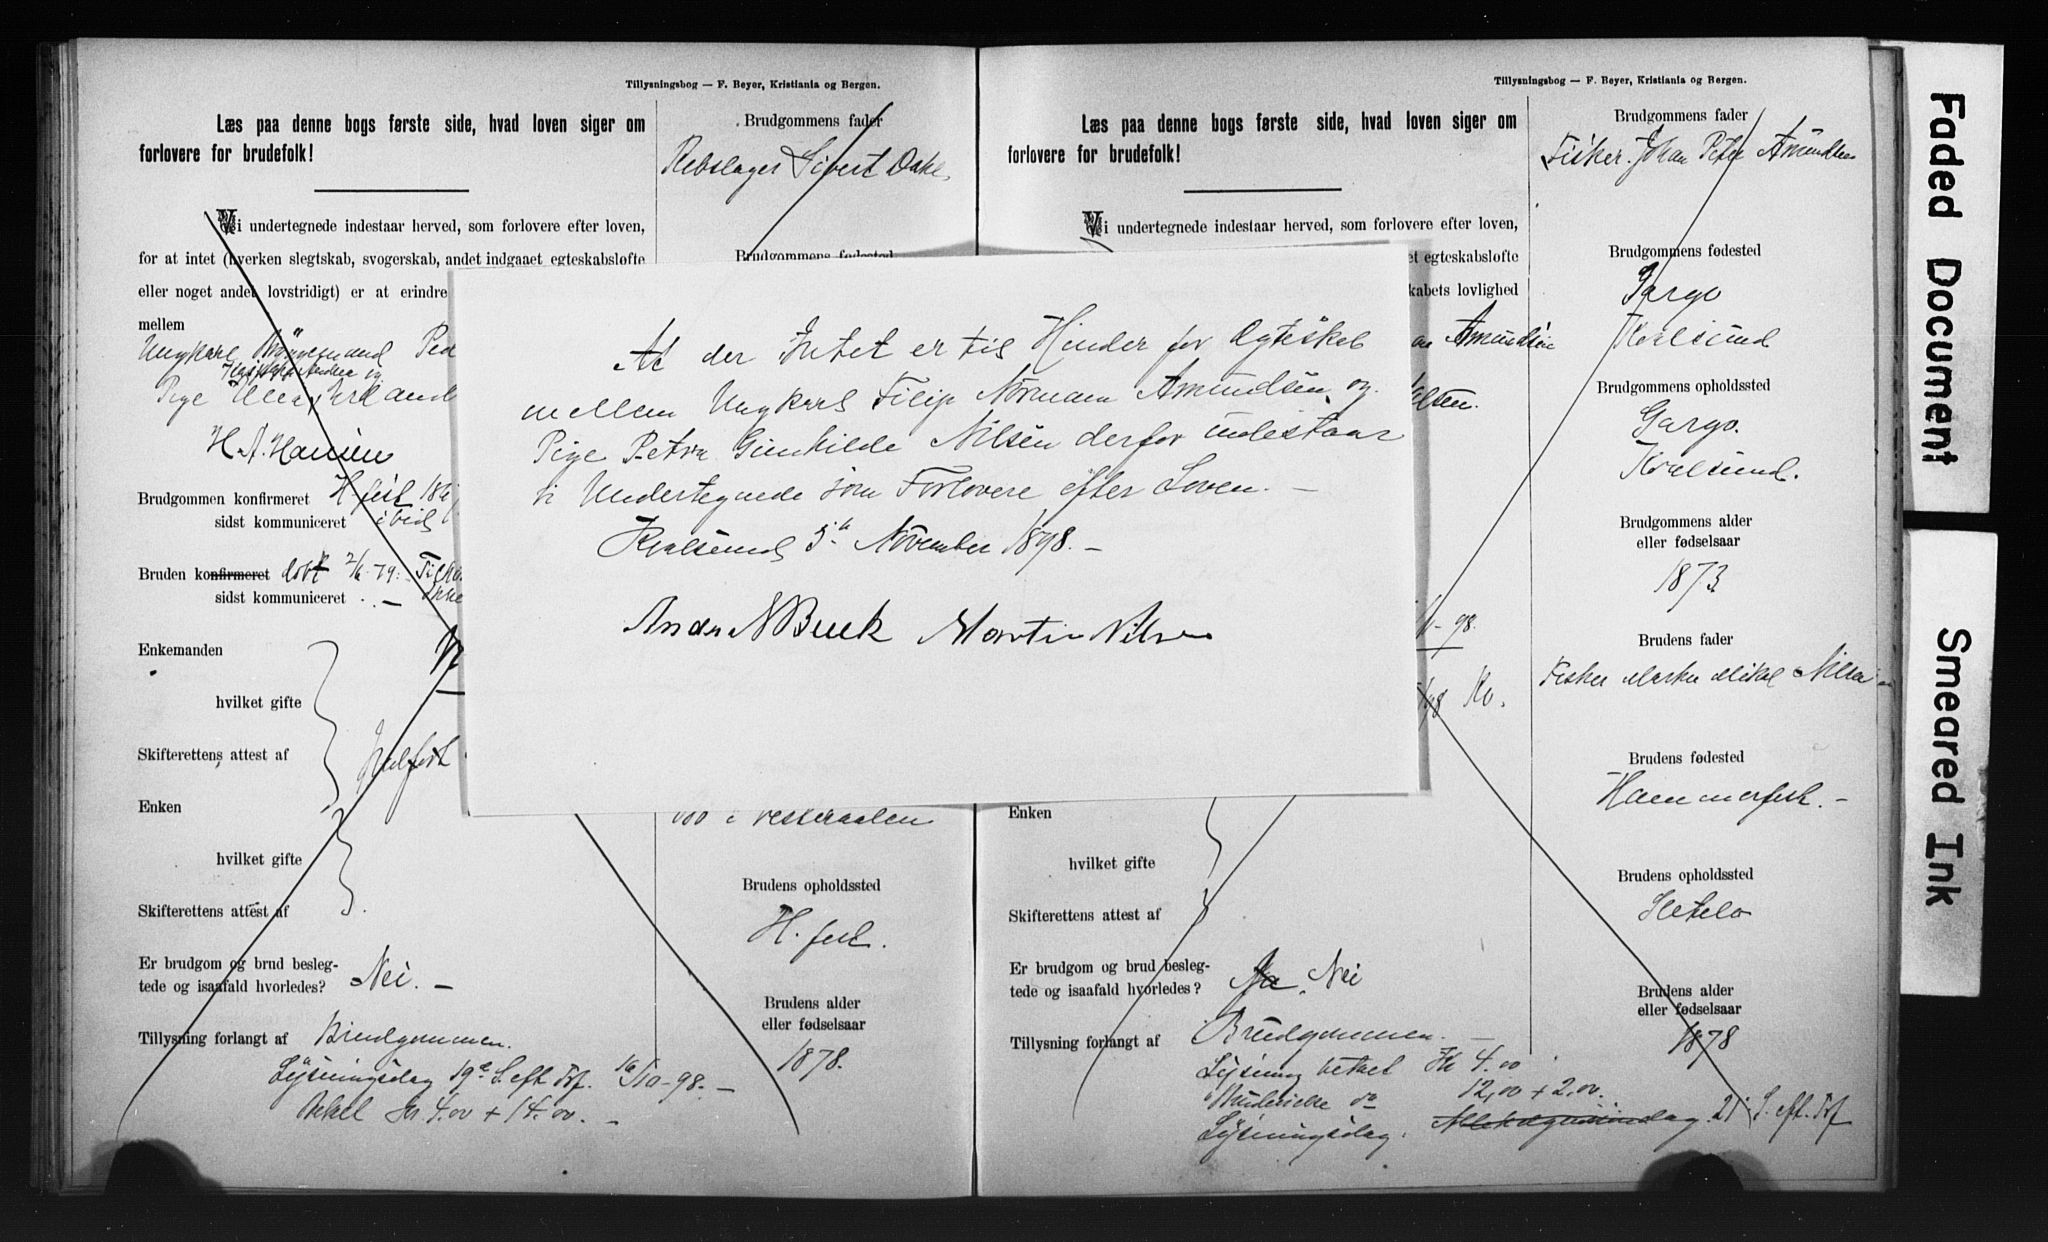 Tillysningsbog — F. Beyer, Kristiania og Bergen.
Læs paa denne bogs første side, hvad loven siger om
forlovere for brudefolk!
Vi undertegnede indestaar herved, som forlovere efter loven,
for at intet (hverken slegtskab, svogerskab, andet indgaaet egteskabsløfte
eller noget andet lovstridigt) er at erindre
mellem
Ungkarl
Pige
H. A. Hansen
Brudgommen konfirmeret H.fest
sidst kommuniceret ibid
Bruden konfirmeret døbt 2/6-79:
sidst kommuniceret . —
Enkemanden
hvilket gifte
Skifterettens attest af
Enken
hvilket gifte
Skifterettens attest af
Er brudgom og brud besleg-
tede og isaafald hvorledes? Nei. —
Tillysning forlangt af Brudgommen.
Lysningsdag 19de S. eft Tref. 16/10-98. —
Betalt Kr 4.00 + 14.00. —
Brudgommens fader
Rebslager Sivert Dahl,
Brudgommens fødested
Bø i Vesteraalen
Brudens opholdssted
H.fest.
Brudens alder
eller fødselsaar
1878.
At der Intet er til Hinder for Ægteskab
mellem Ungkarl Filip Norman Amundsen og
Pige Petra Gunhilde Nilsen derfor indestaar
vi Undertegnede som Forlovere efter Loven. —
Kvalsund 5te November 1898. —
Anders N Buck Martin Nilsen
Tillysningsbog — F. Beyer, Kristiania og Bergen.
Læs paa denne bogs første side, hvad loven siger om
forlovere for brudefolk!
Vi undertegnede indestaar herved, som forlovere efter loven,
et egteskabsløfte
kabets lovlighed
an Amundsen
ilsen.
-98.
98 Kv.
Enken
hvilket gifte
Skifterettens attest af
Er brudgom og brud besleg-
tede og isaafald hvorledes? Ja, Nei
Tillysning forlangt af Brudgommen. —
Lysning betalt Kr 4.00
Brudevielse do 12,00 + 2,00.
Lysningsdag. Allehelgensdag. 21 S. eft. Tref
Brudgommens fader
Fisker Johan Peter Amundsen
Brudgommens fødested
Gargo
Kvalsund
Brudgommens opholdssted
Gargo.
Kvalsund.
Brudgommens alder
eller fødselsaar
1873
Brudens fader
Fisker Mikal Nilsen
Brudens fødested
Hammerfest. —
Brudens opholdssted
Brudens alder
eller fødselsaar
1878
Faded Document
Smeared Ink